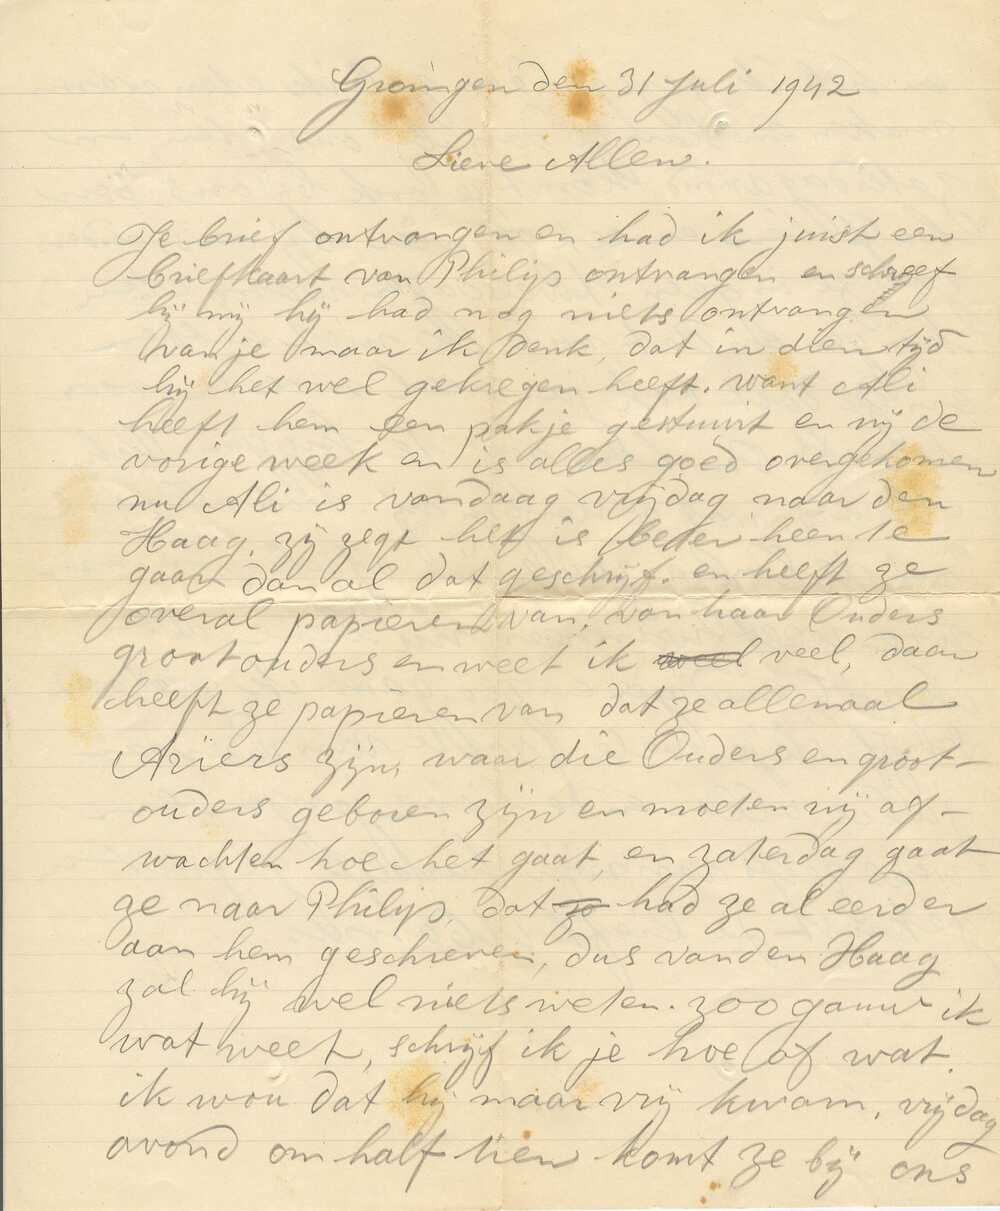 Groningen den 31 Juli 1942
Lieve Allen.
Je brief ontvangen en had ik juist een
briefkaart van Philip ontvangen en schreef
hij mij hij had nog niets ontvangen
van je maar ik denk, dat in dien tijd
hij het wel gekregen heeft. want Ali
heeft hem een pakje gestuurt en wij de
vorige week en is alles goed overgekomen
nu Ali is vandaag vrijdag naar den
Haag, zij zegt het is beter heen te
gaan dan al dat geschrijf. en heeft ze
overal papieren van, van haar Ouders
grootouders en weet ik weel veel, daar
heeft ze papieren van dat ze allemaal
Ariers zijn, waar die Ouders en groot-
ouders geboren zijn en moeten wij af-
wachten hoe het gaat, en zaterdag gaat
ze naar Philip, dat zo had ze al eerder
aan hem geschreven, dus van den Haag
zal hij wel niets weten. zoo gauw ik
wat weet, schrijf ik je hoe of wat.
ik wou dat hij maar vrij kwam, vrijdag
avond om half tien komt ze bij ons